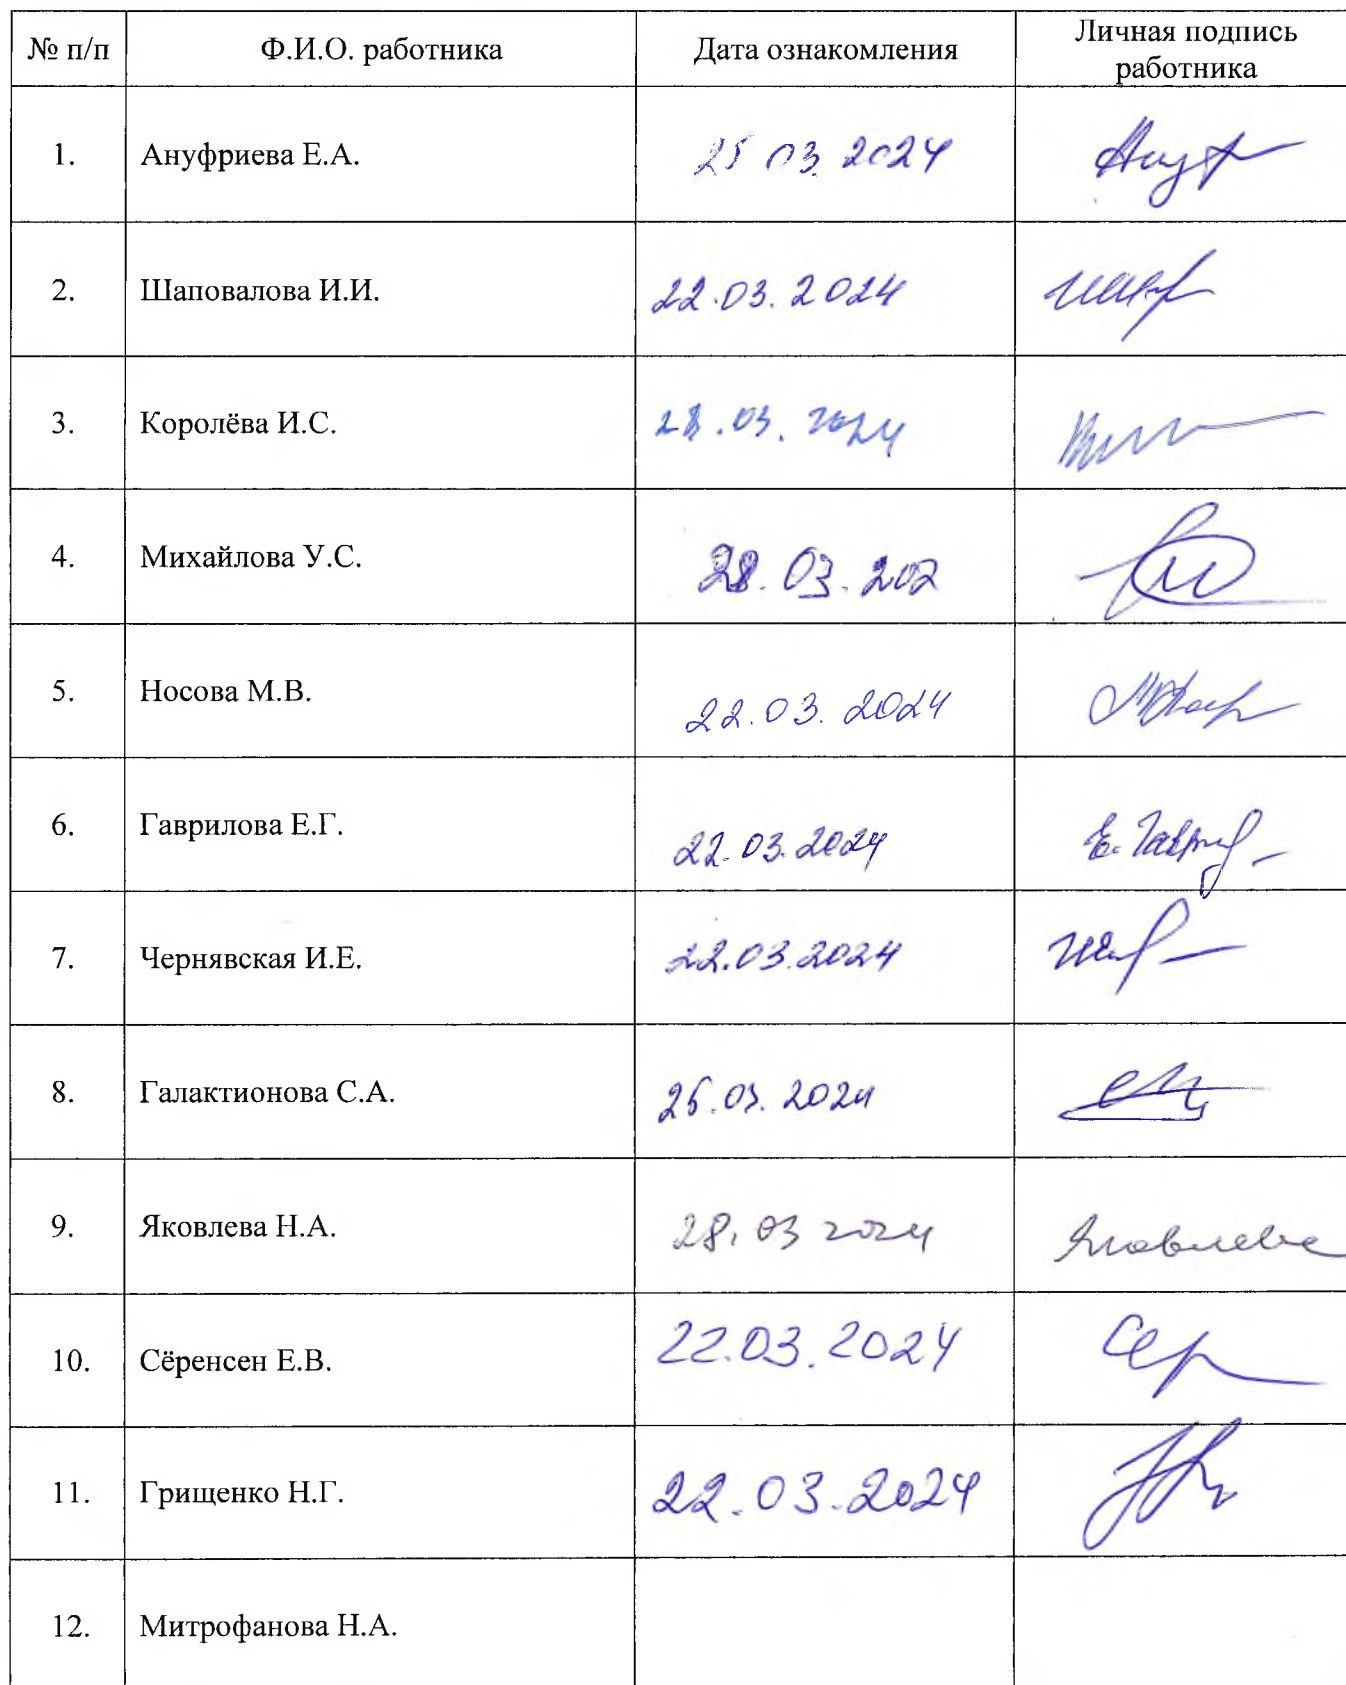 № п/п Ф.И.О. работника Дата ознакомления Личная подпись
работника
1. Ануфриева Е.А. 25 03 2024 Ануф
2. Шаповалова И.И. 22.03.2024
3. Королёва И.С. 28.03.2024
4. Михайлова У.С. 28.03.202
5. Носова М.В. 22.03.2024
6. Гаврилова Е.Г. 22.03.2024 Е. Гаврил
7. Чернявская И.Е. 22.03.2024
8. Галактионова С.А. 25.03.2024
9. Яковлева Н.А. 28.03 2024 Яковлева
10. Сёренсен Е.В. 22.03.2024 Сер
11. Грищенко Н.Г. 22.03.2024
12. Митрофанова Н.А.